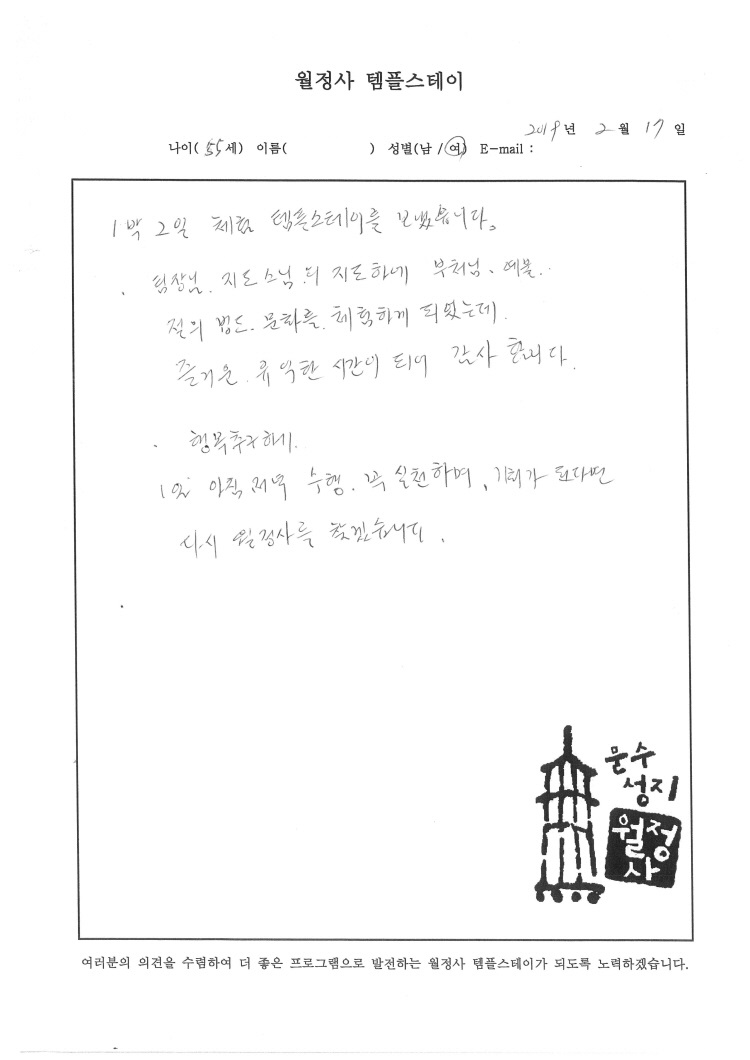 월정사 템플스테이
2019년 2월 17일
나이( 55세) 이름( ) 성별(남 / 여) E-mail :
1박 2일 체험 템플스테이를 보냈습니다.
팀장님. 지도스님의 지도하에 부처님. 예불.
절의 법도. 문화를. 체험하게 되었는데.
즐거운. 유익한 시간이 되어 감사 합니다.
행복추구하기.
1일 아침 저녁 수행. 꼭 실천하며, 기회가 된다면
다시 월정사를 찾겠습니다.
문수
성지
월정
사
여러분의 의견을 수렴하여 더 좋은 프로그램으로 발전하는 월정사 템플스테이가 되도록 노력하겠습니다.